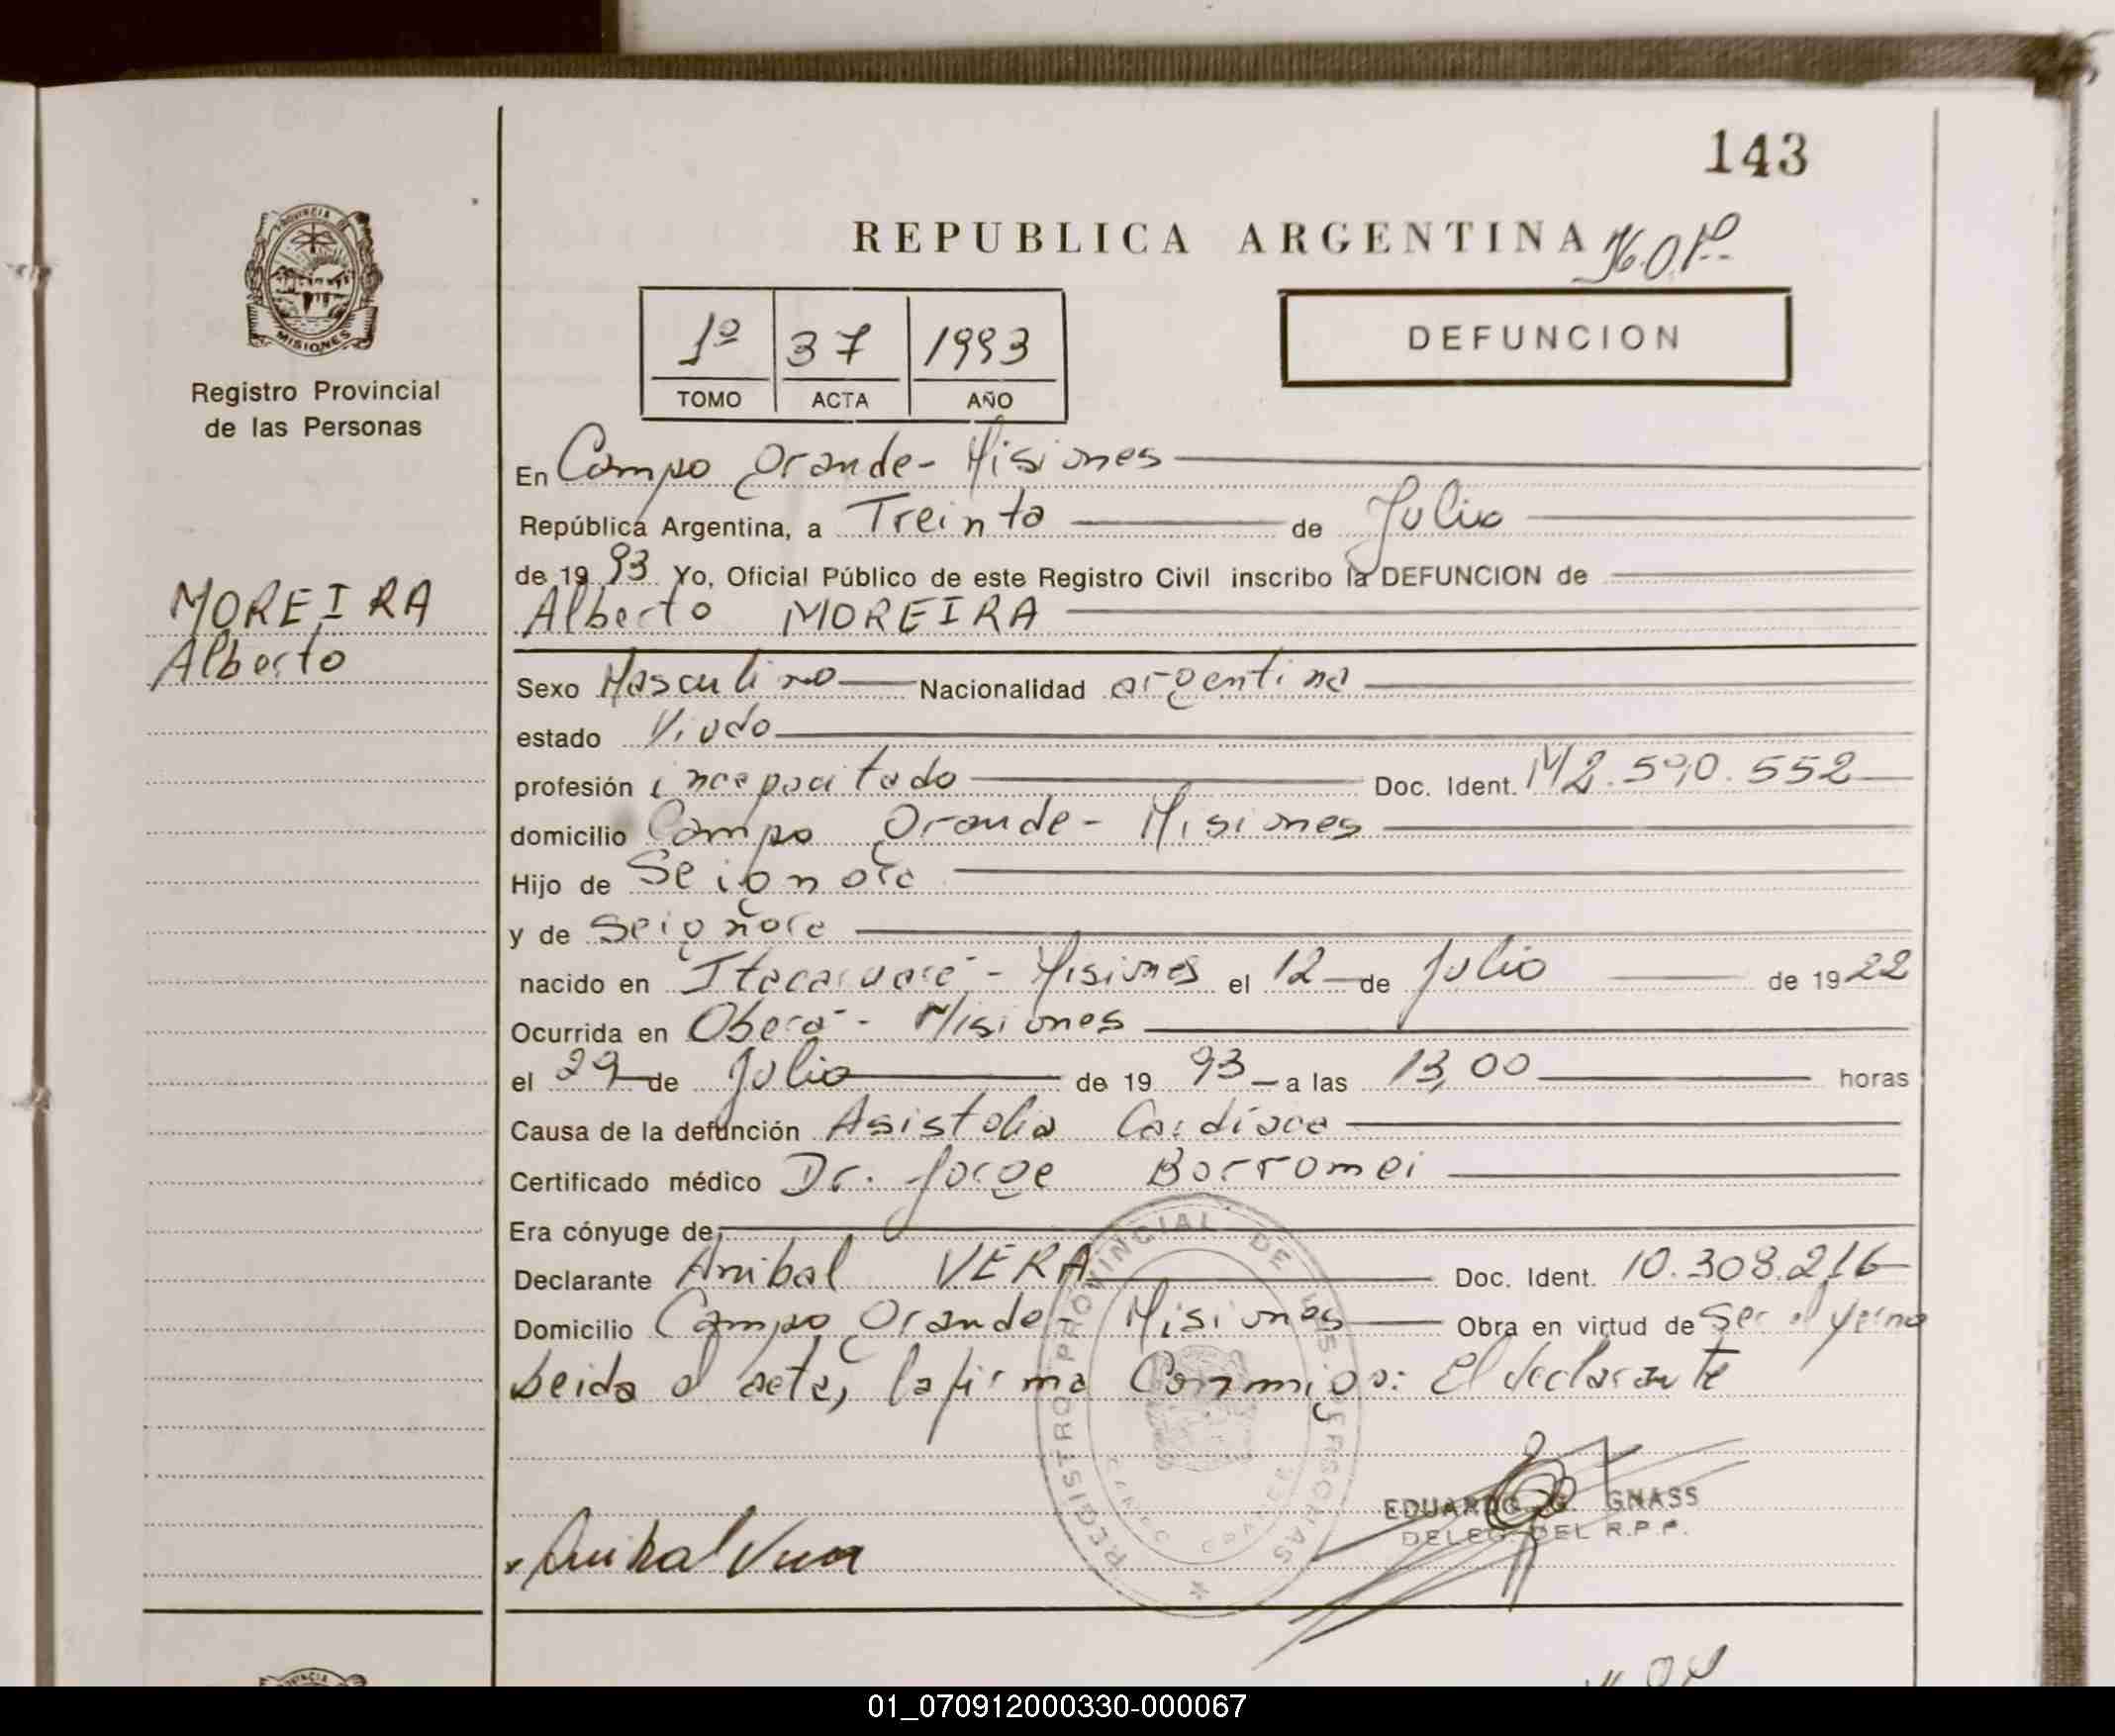 143
REPUBLICA ARGENTINA
PROVINCIA DE
MISIONES
Registro Provincial
de las Personas
1º 37 1993
TOMO ACTA AÑO
DEFUNCION
En Campo Grande - Misiones
República Argentina, a Treinta de Julio
de 1993 Yo, Oficial Público de este Registro Civil inscribo la DEFUNCION de
MOREIRA
Alberto
Alberto MOREIRA
Sexo Masculino Nacionalidad argentina
estado Viudo
profesión incapacitado Doc. Ident. M 2.590.552
domicilio Campo Grande - Misiones
Hijo de Se ignora
y de Se ignora
nacido en Itacaruaré - Misiones el 12 de Julio de 1922
Ocurrida en Oberá - Misiones
el 29 de Julio de 1993 a las 13,00 horas
Causa de la defunción Asistolia Cardíaca
Certificado médico Dr. Jorge Borromei
Era cónyuge de
Declarante Anibal VERA Doc. Ident. 10.308.216
Domicilio Campo Grande - Misiones Obra en virtud de ser el yerno
Leida el acta, la firma Conmigo: El declarante
REGISTRO PROVINCIAL DE LAS PERSONAS
EDUARDO G. GNASS
DELEG. DEL R.P.P.
Anibal Vera
01_070912000330-000067